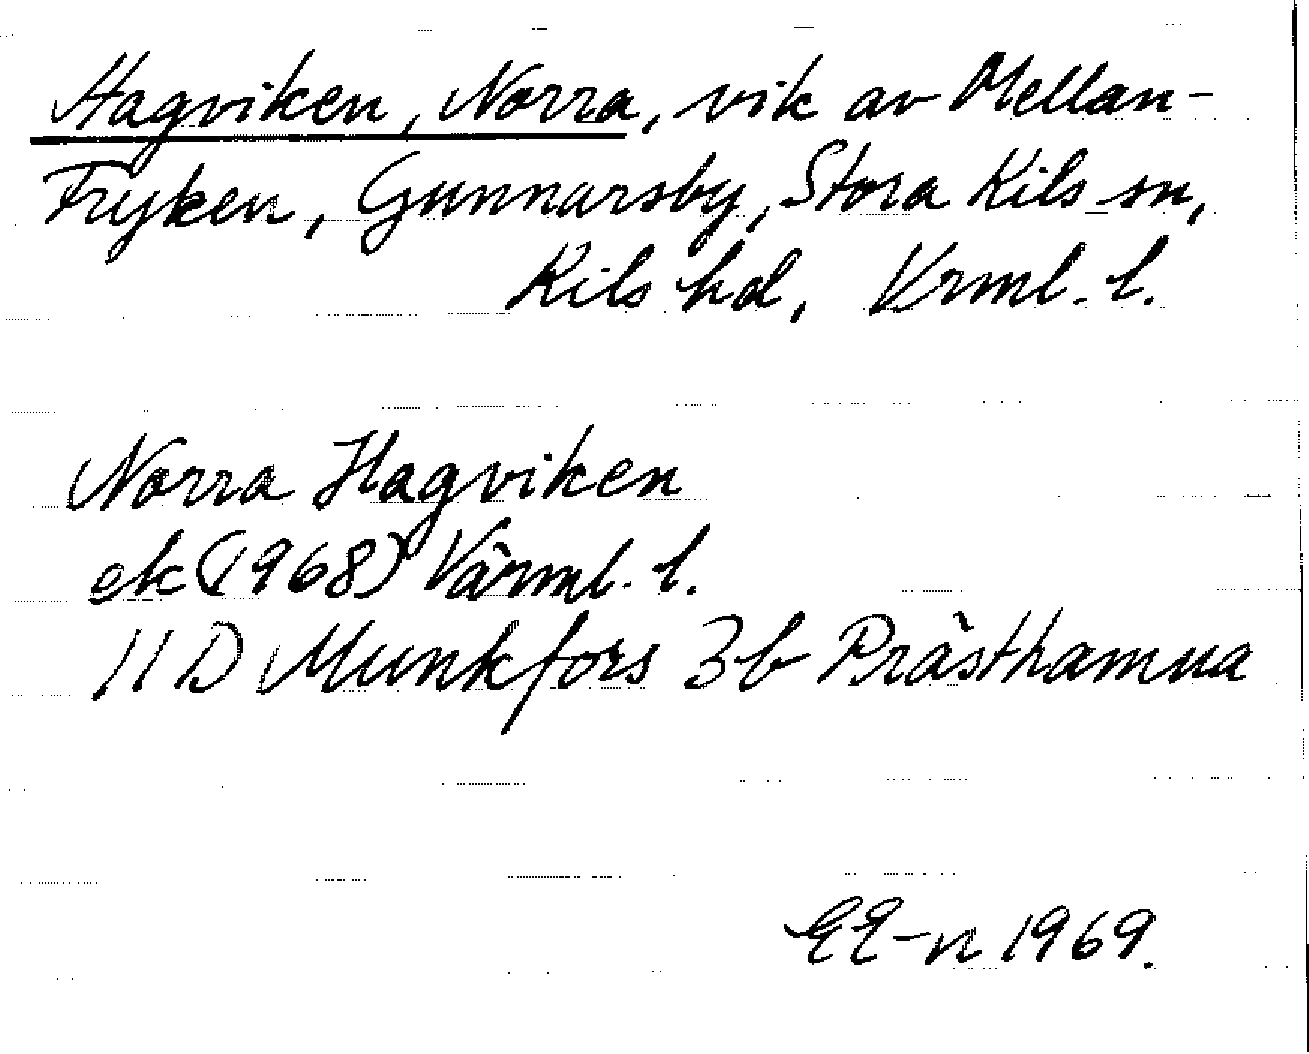 Hagviken, Norra, vik av Mellan-
Fryken, Gunnarsby, Stora Kils sn,
Kils hd, Vrml. l.
Norra Hagviken
ek (1968) Värml. l.
11 D Munkfors 3b Prästhamna
EE-n 1969.